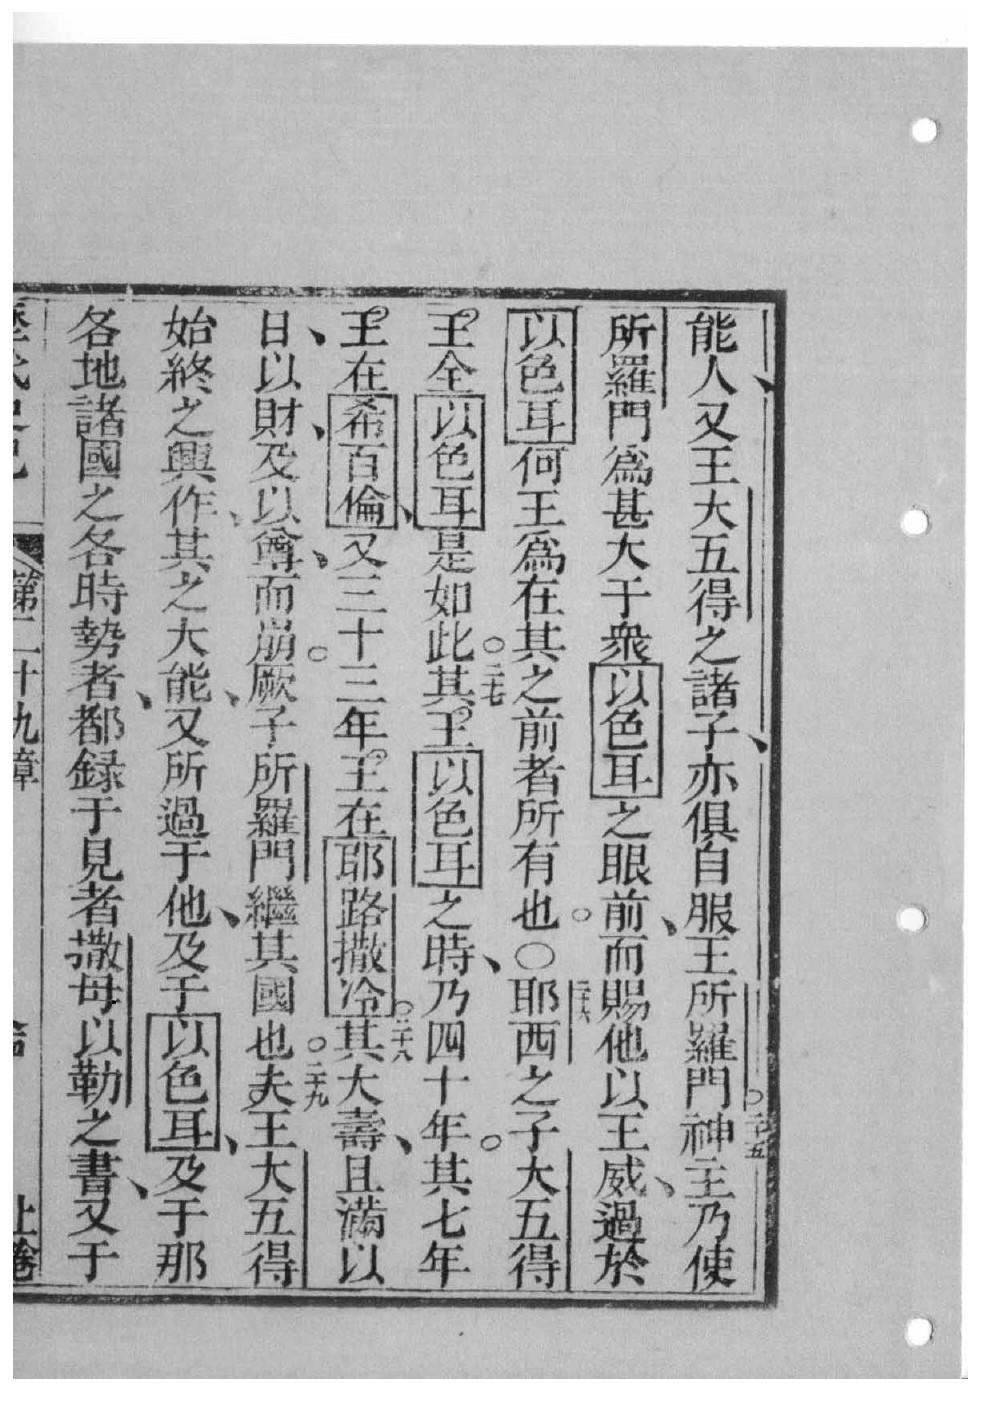 能人、又王大五得之諸子、亦俱自服王所羅門。二十五神主乃使
所羅門爲甚大于衆以色耳之眼前、而賜他以王威、過於
以色耳何王爲在其之前者所有也。○二十六耶西之子大五得
王全以色耳是如此。二十七其王以色耳之時、乃四十年。其七年
王在希百倫、又三十三年王在耶路撒冷。二十八其大壽、且滿以
日、以財、及以尊、而崩。厥子所羅門繼其國也。二十九夫王大五得
始終之興作、其之大能、又所過于他、及于以色耳、及于那
各地諸國之各時勢者、都録于見者撒母以勒之書、又于
歷代史紀 第二十九章 上卷